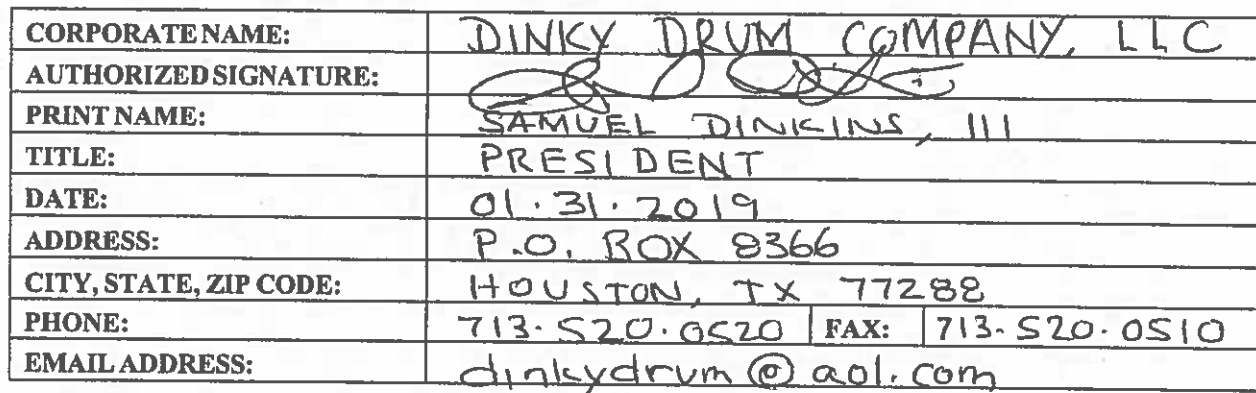 CORPORATE NAME: DINKY DRUM COMPANY, LLC
AUTHORIZED SIGNATURE:
PRINT NAME: SAMUEL DINKINS, III
TITLE: PRESIDENT
DATE: 01.31.2019
ADDRESS: P.O. BOX 8366
CITY, STATE, ZIP CODE: HOUSTON, TX 77288
PHONE: 713.520.0520 FAX: 713.520.0510
EMAIL ADDRESS: dinkydrum@aol.com